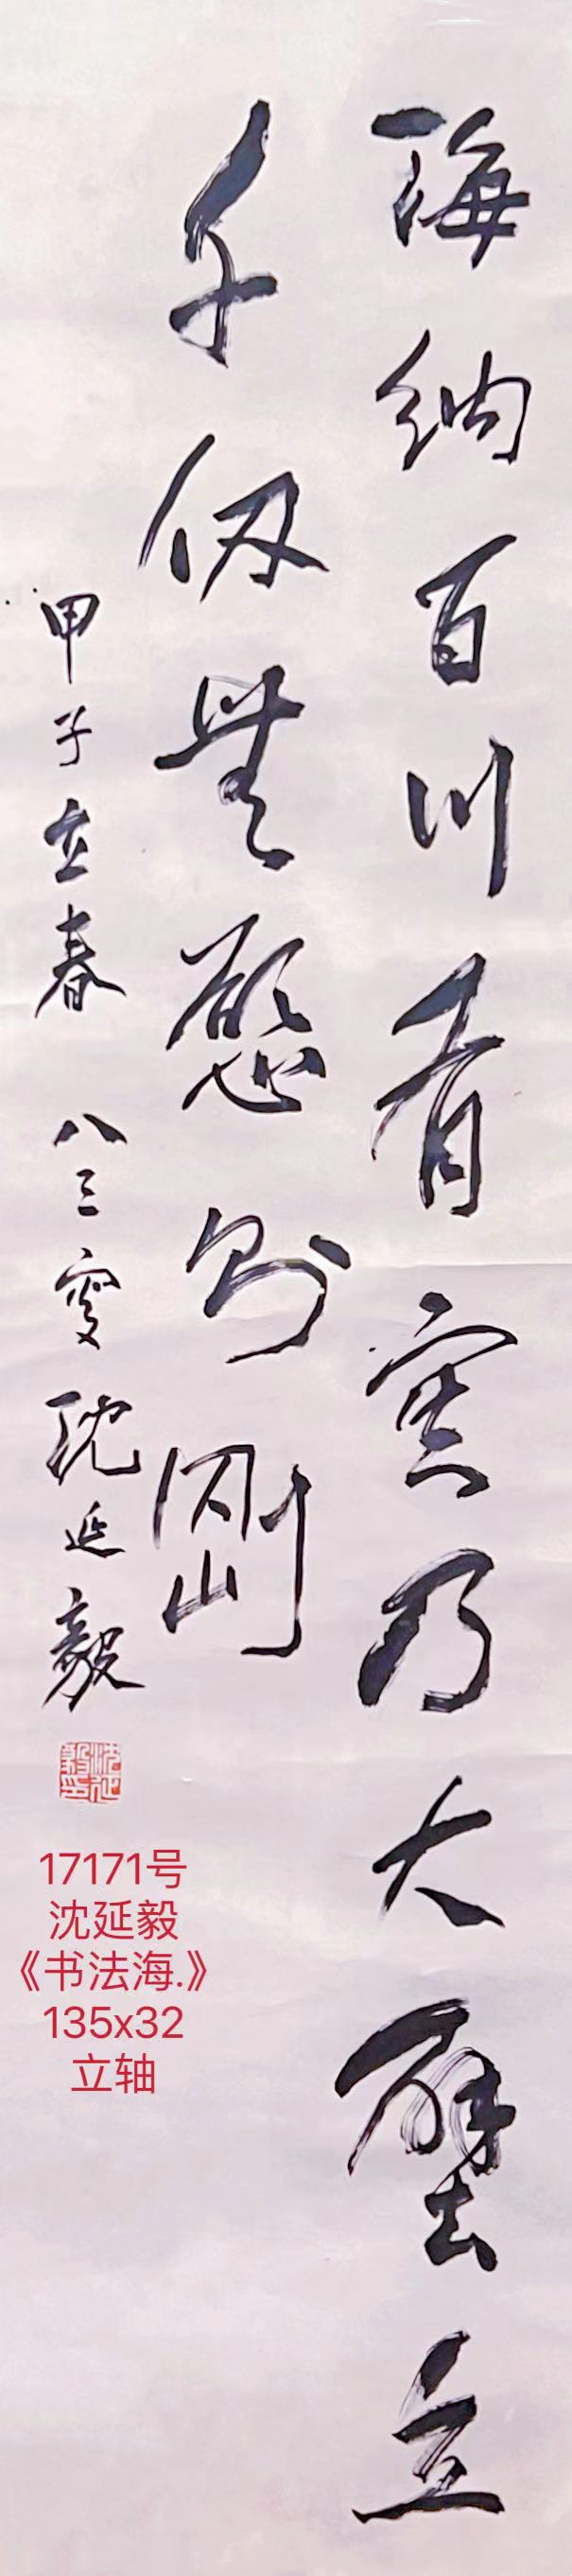 海納百川有容乃大壁立
千仞無慾則剛
甲子立春 八三叟 沈延毅
沈延毅印
17171号
沈延毅
《书法海.》
135x32
立轴